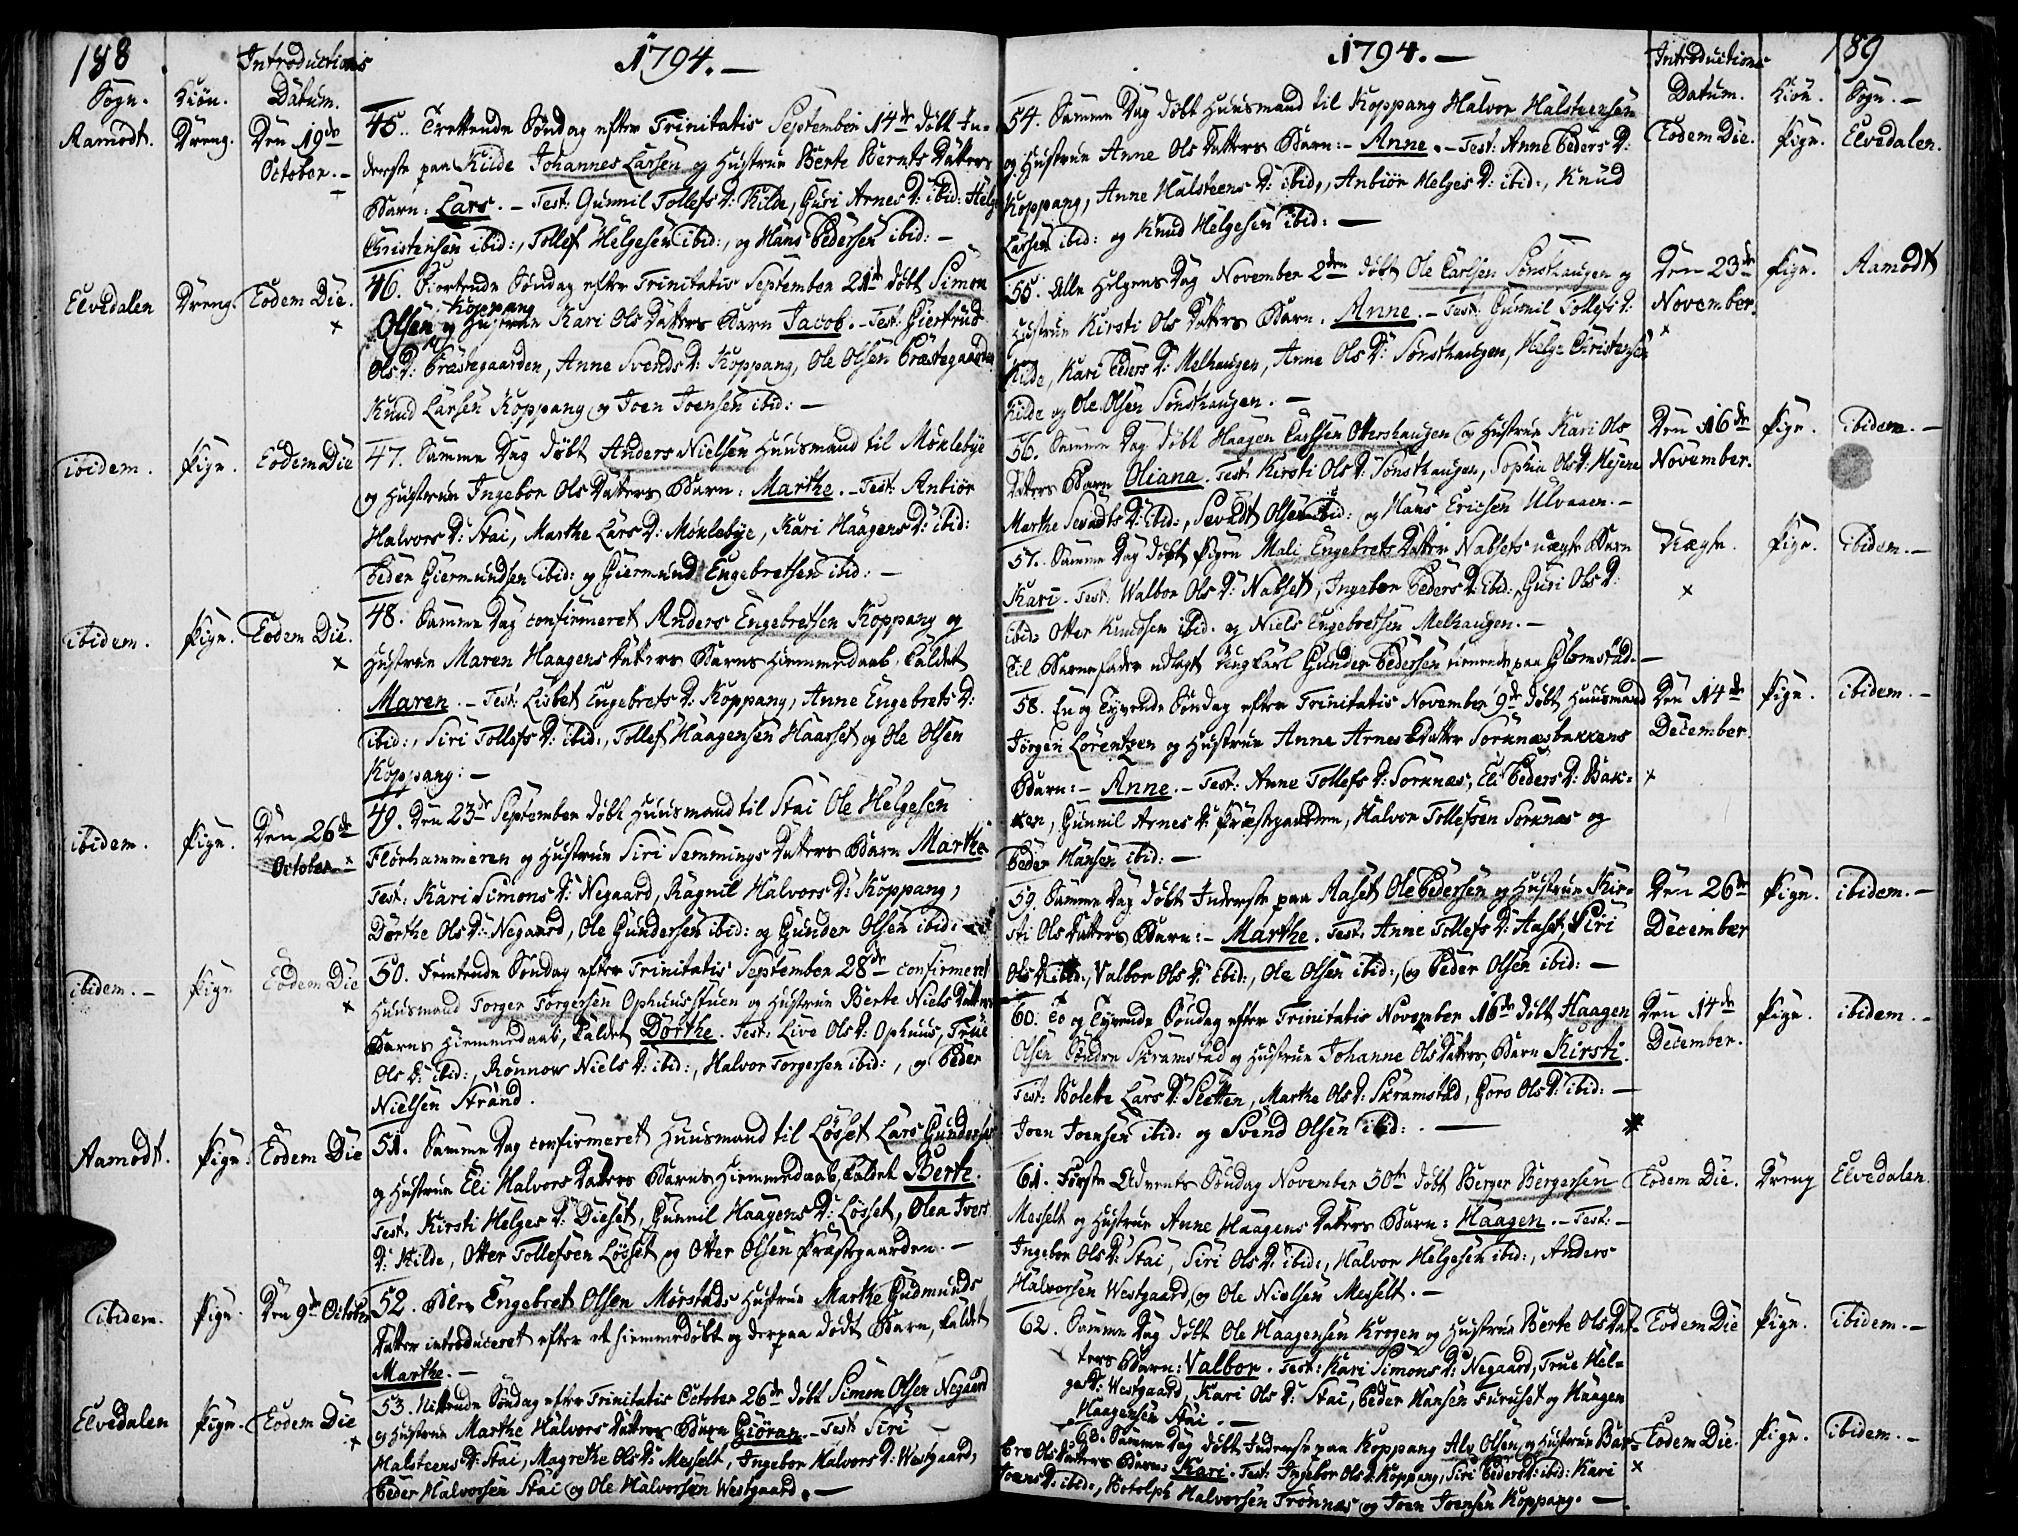 188
Introductions
1794. —
Sogn. Kiön. Datum.
Aamodt. Dreng. Den 19de October. —
45. Trettende Söndag efter Trinitatis September 14de döbt In-
derste paa Kilde Johannes Larsen og Hustrue Berte Bernts Datters
Barn: Lars. — Test: Gunnil Tollefs D: Kilde, Guri Arnes D: ibid: Helge
Christensen ibid:, Tollef Helgesen ibid:, og Hans Pedersen ibid: —
Elvedalen Dreng. Eodem Die. x
46. Fiortende Söndag efter Trinitatis September 21de döbt Simon
Olsen Koppang og Hustrue Kari Ols Datters Barn Jacob. — Test: Giertrud
Ols D: Præstegaarden, Anne Svends D: Koppang, Ole Olsen Præstegaarden
Knud Larsen Koppang og Joen Joensen ibid: —
ibidem. Pige. Eodem Die
47. Samme Dag döbt Anders Nielsen Huusmand til Möklebye
og Hustrue Ingebor Ols Datters Barn: Marthe. — Test: Anbiör
Halvors D: Stai, Marthe Lars D: Möklebye, Kari Haagens D: ibid:
Peder Giermundsen ibid: og Giermund Engebretsen ibid: —
ibidem. Pige. Eodem Die. x
48. Samme Dag confirmeret Anders Engebretsen Koppang og
Hustrue Maren Haagens Datters Barns Hiemmedaab, kaldet
Maren. — Test: Lisbet Engebrets D: Koppang, Anne Engebrets D:
ibid:, Siri Tollefs D: ibid:, Tollef Haagensen Haarset og Ole Olsen
Koppang: —
ibidem. Pige. Den 26de October. x
49. Den 23de September döbt Huusmand til Stai Ole Helgesen
Florhammeren og Hustrue Siri Semmings Datters Barn Marthe
Test. Kari Simons D: Negaard, Ragnil Halvors D: Koppang,
Dorthe Ols D: Negaard, Ole Gundersen ibid: og Gunder Olsen ibid: —
ibidem. — Pige Eodem Die x
50. Femtende Söndag efter Trinitatis September 28de confirmeret
Huusmand Torger Torgersen Ophuusstuen og Hustrue Berte Niels Datters
Barns Hiemmedaab, kaldet Dorthe. Test: Live Ols D: Ophuus, True
Ols D: ibid:, Rönnow Niels D: ibid:, Halvor Torgersen ibid:, og Peder
Nielsen Strand.
Aamodt. Pige. Eodem Die
51. Samme Dag confirmeret Huusmand til Lösset Lars Gundersen
og Hustrue Eli Halvors Datters Barns Hiemmedaab, kaldet Berte.
Test. Kirsti Helges D: Dieset, Gunnil Haagens D: Lösset, Olea Ivers
D: Kilde, Otter Tollefsen Lösset og Otter Olsen Præstegaarden. —
ibidem. Pige. Den 9de October
52. Blev Engebret Olsen Mörstads Hustrue Marthe Gudmunds
Datter introduceret efter et hiemmedöbt og derpaa dödt Barn, kaldet
Marthe. —
Elvedalen Pige. Eodem Die x
53. Nittende Söndag efter Trinitatis October 26de döbt Simon Olsen Negaard
og Hustrue Marthe Halvors Datters Barn Giöran. — Test: Siri
Halsteens D: Stai, Magrethe Ols D: Messelt, Ingebor Halvors D: Westgaard,
Peder Halvorsen Stai og Ole Halvorsen Westgaard. —
1794. —
Introductions 189
Datum. Kiön. Sogn. —
54. Samme Dag döbt Huusmand til Koppang Halvor Halsteensen
og Hustrue Anne Ols Datters Barn: — Anne. — Test: Anne Peders D:
Koppang, Anne Halsteens D: ibid:, Anbiör Helges D: ibid:, Knud
Larsen ibid: og Knud Helgesen ibid: —
Eodem Die. Pige. Elvedalen.
55. Alle Helgens Dag November 2den döbt Ole Carlsen Sönsthaugen og
Hustrue Kirsti Ols Datters Barn. Anne. — Test: Gunnil Tollefs D:
Kilde, Kari Peders D: Melhaugen, Anne Ols D: Sönsthaugen, Helge Christensen
Kilde og Ole Olsen Sönsthaugen. —
Den 23de November. x Pige. Aamodt
56. Samme Dag döbt Haagen Carlsen Ottershaugen og Hustrue Kari Ols
Datters Barn Oliana. Test: Kirsti Ols D: Sönsthaugen, Sophie Ols D:
Marthe Sevadts D: ibid:, Sevadt Olsen ibid: og Hans Ericsen Ulvaaen. —
Den 16de November. Pige. ibidem. —
57. Samme Dag döbt Pigen Mali Engebrets Datter Nabsets uægte Barn
Kari. Test: Walbor Ols D: Nabset, Ingebor Peders D: ibid:, Guri Ols D:
ibid: Otter Knudsen ibid. og Niels Engebretsen Melhaugen. —
Til Barnefader udlagt Ungkarl Gunder Pedersen tienende paa Glomstad. —
Uægte. x Pige. ibidem. —
58. En og Tyvende Söndag efter Trinitatis November 9de döbt Huusmand
Jörgen Lorentzen og Hustrue Anne Arnes Datter Sorknæsbakkens
Barn: — Anne. — Test: Anne Tollefs D: Sorknæs, Eli Peders D: Bak-
ken, Gunnil Arnes D: Præstegaarden, Halvor Tollefsen Sorknæs og
Peder Hansen ibid: —
Den 14de December. x Pige. ibidem. —
59. Samme Dag döbt Inderste paa Aaset Ole Pedersen og Hustrue Kir-
sti Ols Datters Barn: — Marthe. Test. Anne Tollefs D: Aaset, Siri
Ols D: ibid:, Valbor Ols D: ibid:, Ole Olsen ibid:, og Peder Olsen ibid: —
Den 26de December Pige. ibidem. —
60. To og Tyvende Söndag efter Trinitatis November 16de döbt Haagen
Olsen Söndre Skramstad og Hustrue Johanne Ols Datters Barn Kirsti.
Test: Bolette Lars D: Sletten, Marthe Ols D: Skramstad, Goro Ols D: ibid: —
Joen Joensen ibid: og Svend Olsen ibid: . —
Den 14de December. Pige. ibidem. —
61. Förste Advents Söndag November 30te döbt Berger Bergersen
Messelt og Hustrue Anne Haagens Datters Barn: Haagen. — Test: —
Ingebor Ols D: Stai, Siri Ols D: ibid:, Halvor Helgesen ibid:, Anders
Halvorsen Westgaard, og Ole Nielsen Messelt. —
Eodem Die. Dreng Elvedalen.
62. Samme Dag döbt Ole Haagensen Krogen og Hustrue Berte Ols Dat-
ters Barn: Valbor. Test: Kari Simons D: Negaard, True Hel-
ges D: Westgaard, Kari Ols D: Stai, Peder Hansen Furuset og Haagen
Haagensen Stai. —
Eodem Die Pige. ibidem. —
63. Samme Dag döbt Inderste paa Koppang Alv Olsen og Hustrue Bar-
bro Ols Datters Barn: Kari. Test: Ingebor Ols D: Koppang, Siri Peders D: ibid: Kari
Joens D: ibid:, Botolph Halvorsen Trönnæs og Joen Joensen Koppang. —
Eodem Die. x Pige. ibidem. —